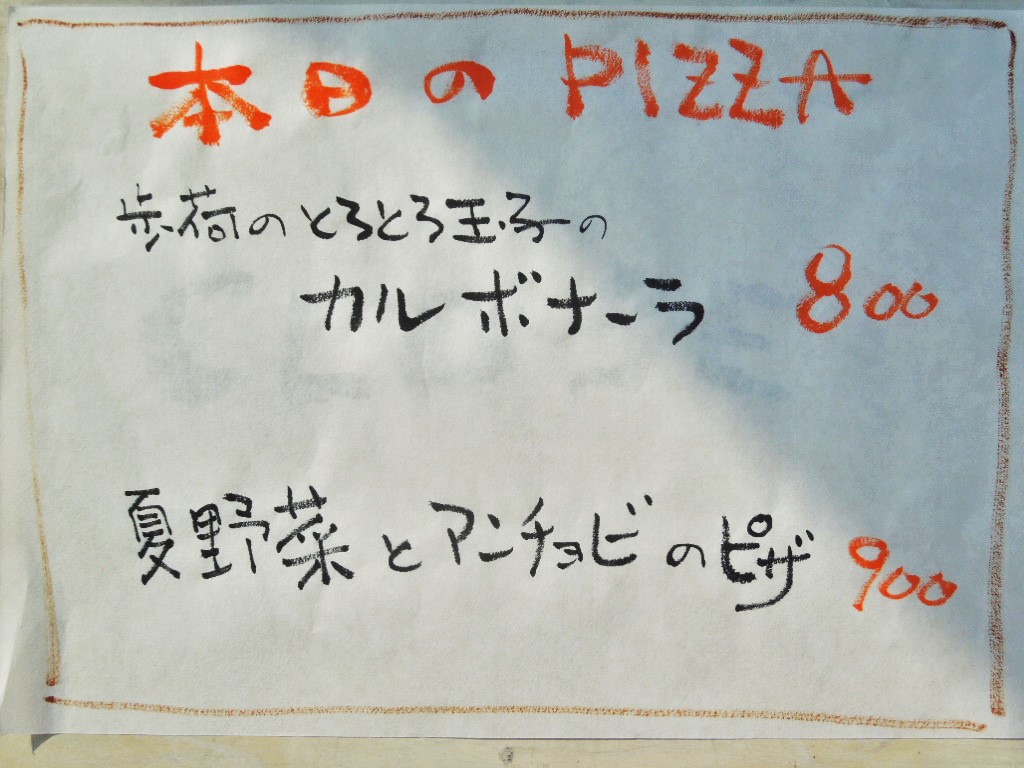 本日のPIZZA
歩荷のとろとろ玉子の
カルボナーラ 800
夏野菜とアンチョビのピザ 900